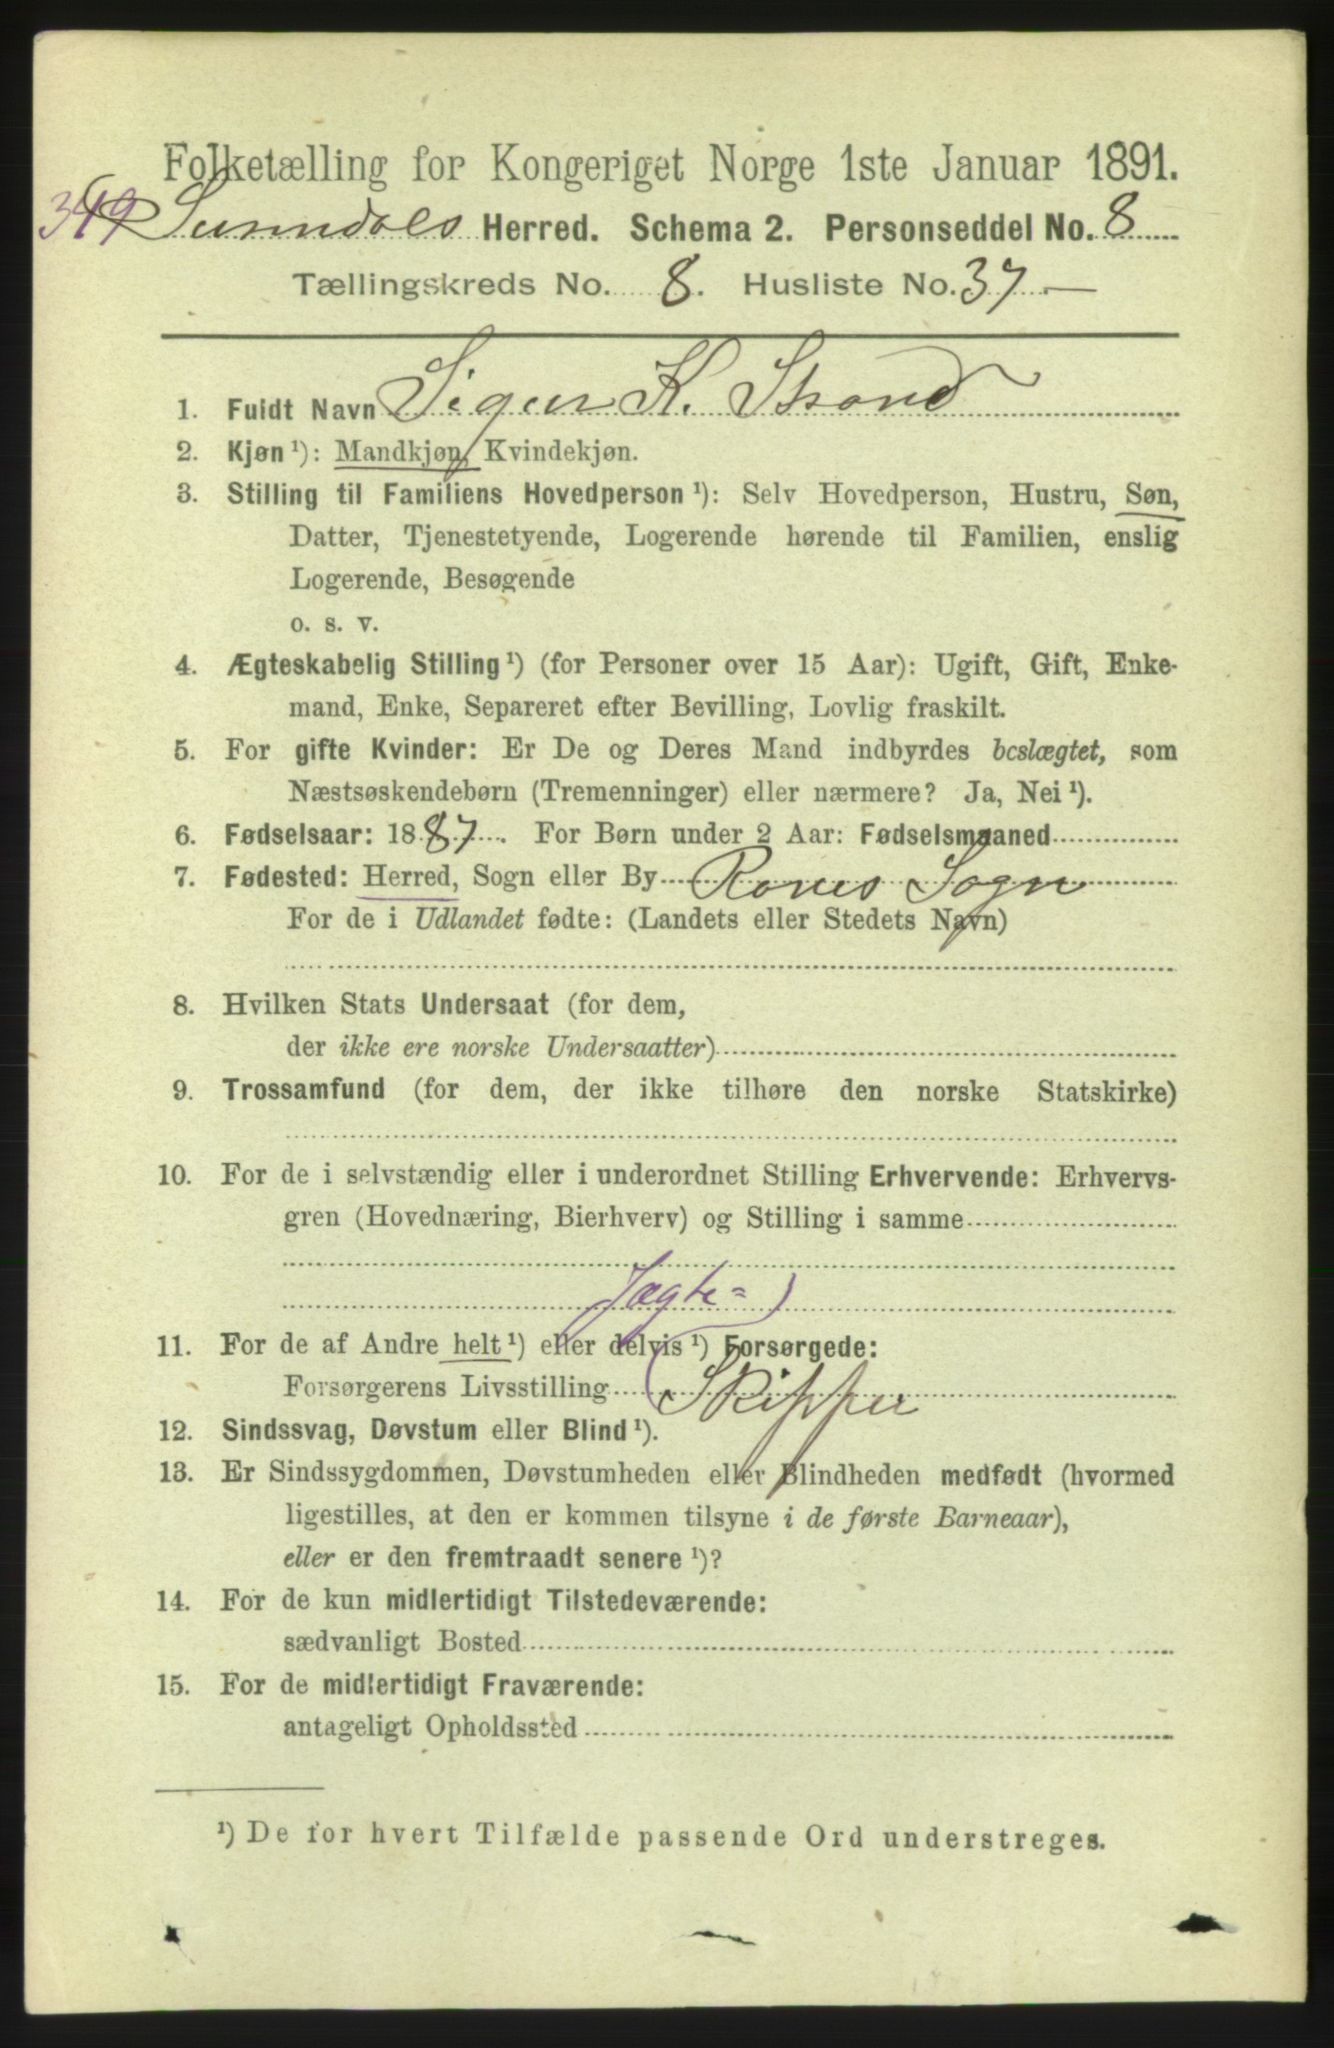 Folketælling for Kongeriget Norge 1ste Januar 1891.
349 Sunndals Herred. Schema 2. Personseddel No. 8
Tællingskreds No. 8. Husliste No. 37.
1. Fuldt Navn Sigur K. Strand
2. Kjøn ¹): Mandkjøn, Kvindekjøn.
3. Stilling til Familiens Hovedperson ¹): Selv Hovedperson, Hustru, Søn,
Datter, Tjenestetyende, Logerende hørende til Familien, enslig
Logerende, Besøgende
o. s. v.
4. Ægteskabelig Stilling ¹) (for Personer over 15 Aar): Ugift, Gift, Enke-
mand, Enke, Separeret efter Bevilling, Lovlig fraskilt.
5. For gifte Kvinder: Er De og Deres Mand indbyrdes beslægtet, som
Næstsøskendebørn (Tremenninger) eller nærmere? Ja, Nei ¹).
6. Fødselsaar: 1887. For Børn under 2 Aar: Fødselsmaaned
7. Fødested: Herred, Sogn eller By Romes Sogn
For de i Udlandet fødte: (Landets eller Stedets Navn)
8. Hvilken Stats Undersaat (for dem,
der ikke ere norske Undersaatter)
9. Trossamfund (for dem, der ikke tilhøre den norske Statskirke)
10. For de i selvstændig eller i underordnet Stilling Erhvervende: Erhvervs-
gren (Hovednæring, Bierhverv) og Stilling i samme
Jagte=)
11. For de af Andre helt ¹) eller delvis ¹) Forsørgede:
Forsørgerens Livsstilling (Skipper
12. Sindssvag, Døvstum eller Blind ¹).
13. Er Sindssygdommen, Døvstumheden eller Blindheden medfødt (hvormed
ligestilles, at den er kommen tilsyne i de første Barneaar),
eller er den fremtraadt senere ¹)?
14. For de kun midlertidigt Tilstedeværende:
sædvanligt Bosted
15. For de midlertidigt Fraværende:
antageligt Opholdssted
¹) De for hvert Tilfælde passende Ord understreges.